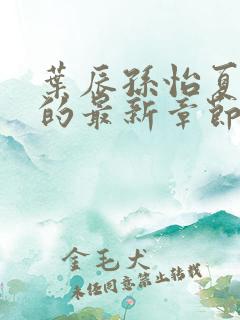 葉辰孫怡夏
的最新章節
金毛犬
未經同意禁止轉載